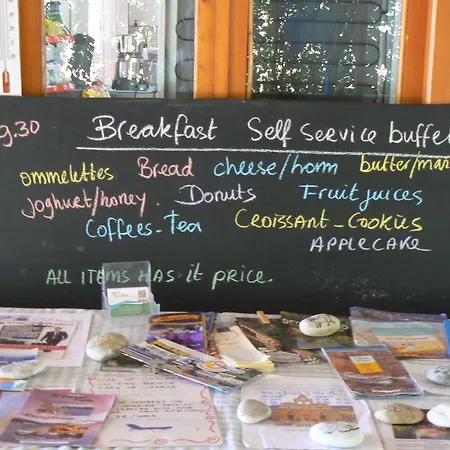 9.30 Breakfast Self Service buffe
ommelettes Bread cheese/homm butter/mar
Joghurt/honey. Donuts Fruit juices
Coffees-Tea Croissant-Cookies
APPLECAKE
ALL ITEMS HAS it PRICE.